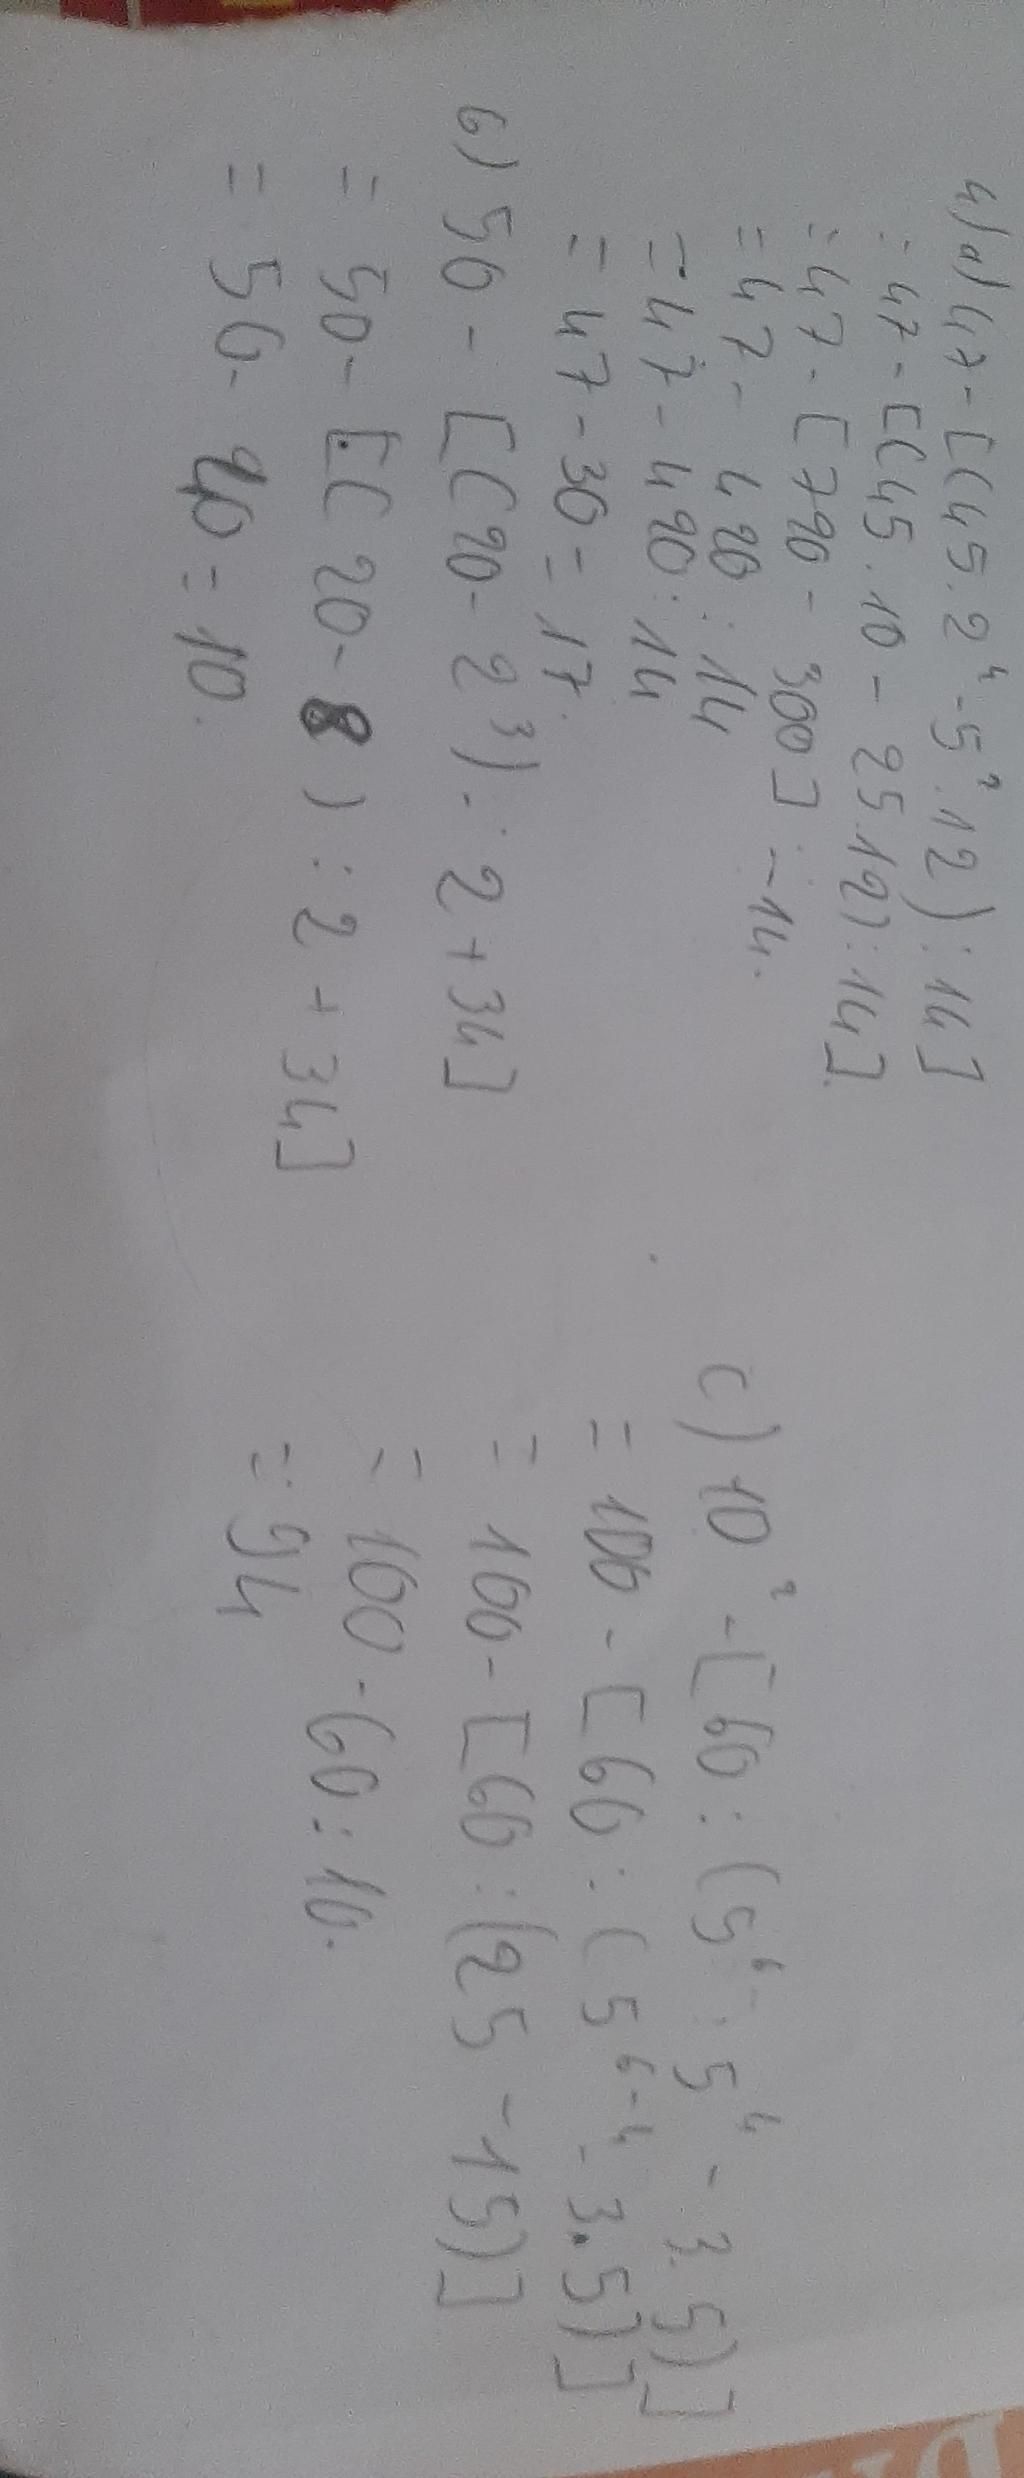 4) a) 47 - [(45.2⁴ - 5².12) : 14]
= 47 - [(45.10 - 25.12) : 14].
= 47 - [790 - 300] : 14.
= 47 - 420 : 14
= 47 - 420 : 14
= 47 - 30 = 17.
b) 50 - [(20 - 2³) : 2 + 34]
= 50 - [(20 - 8) : 2 + 34]
= 50 - 40 = 10.
c) 10² - [60 : (5⁶ : 5⁴ - 3.5)]
= 100 - [60 : (5⁶⁻⁴ - 3.5)]
= 100 - [60 : (25 - 15)]
= 100 - 60 : 10.
= 94